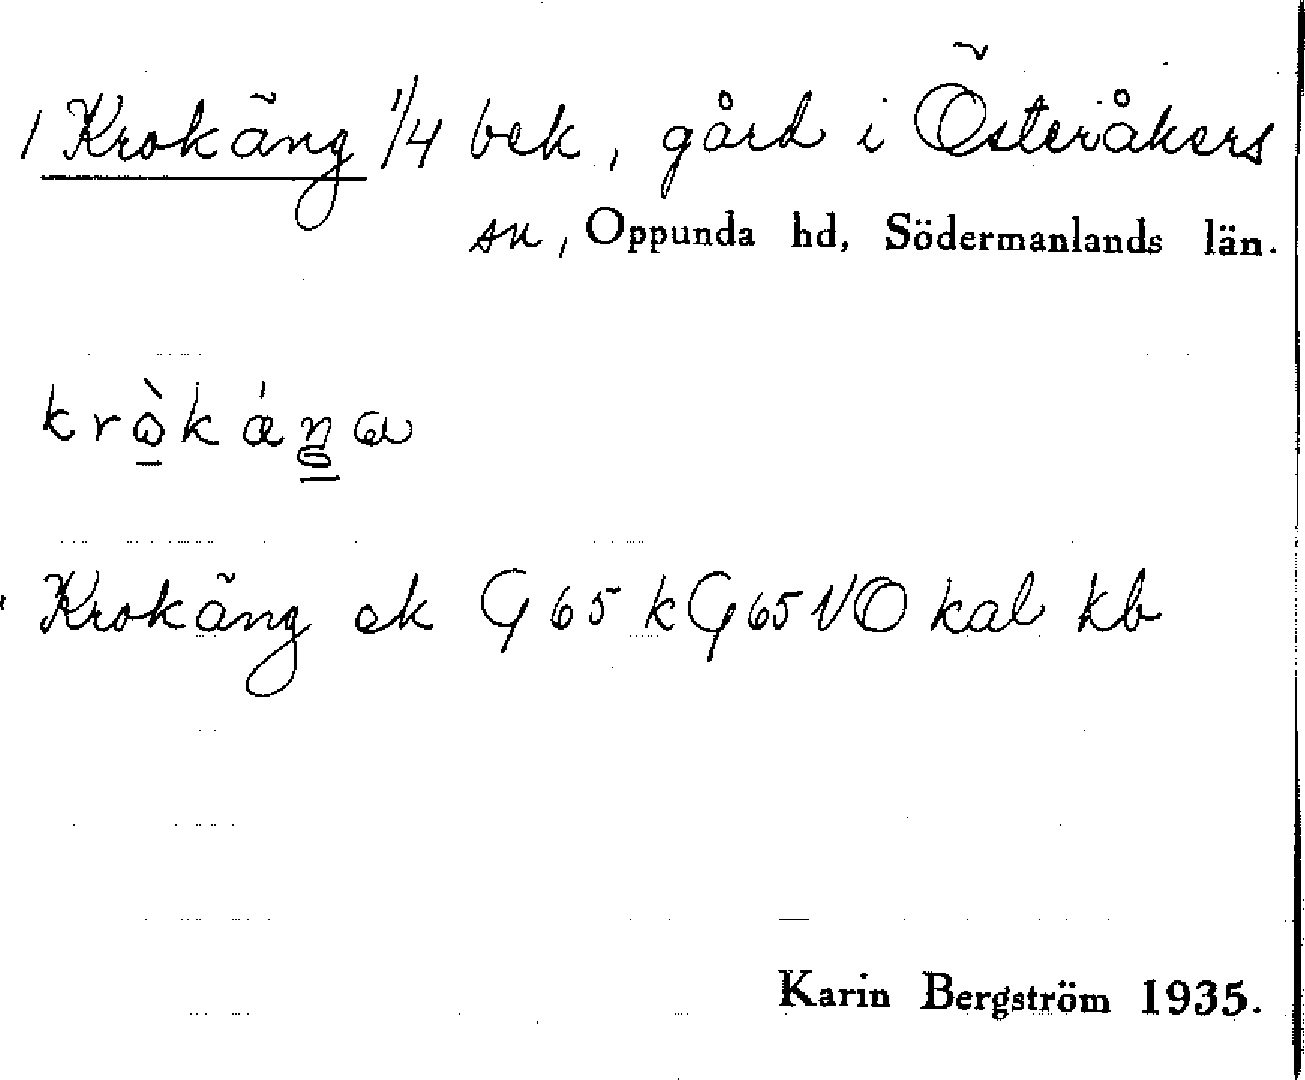 1 Krokäng 1/4 bek, gård i Österåkers
sn, Oppunda hd, Södermanlands län.
Krokäng ek G 65 kG 65 VO kal kb
Karin Bergström 1935.